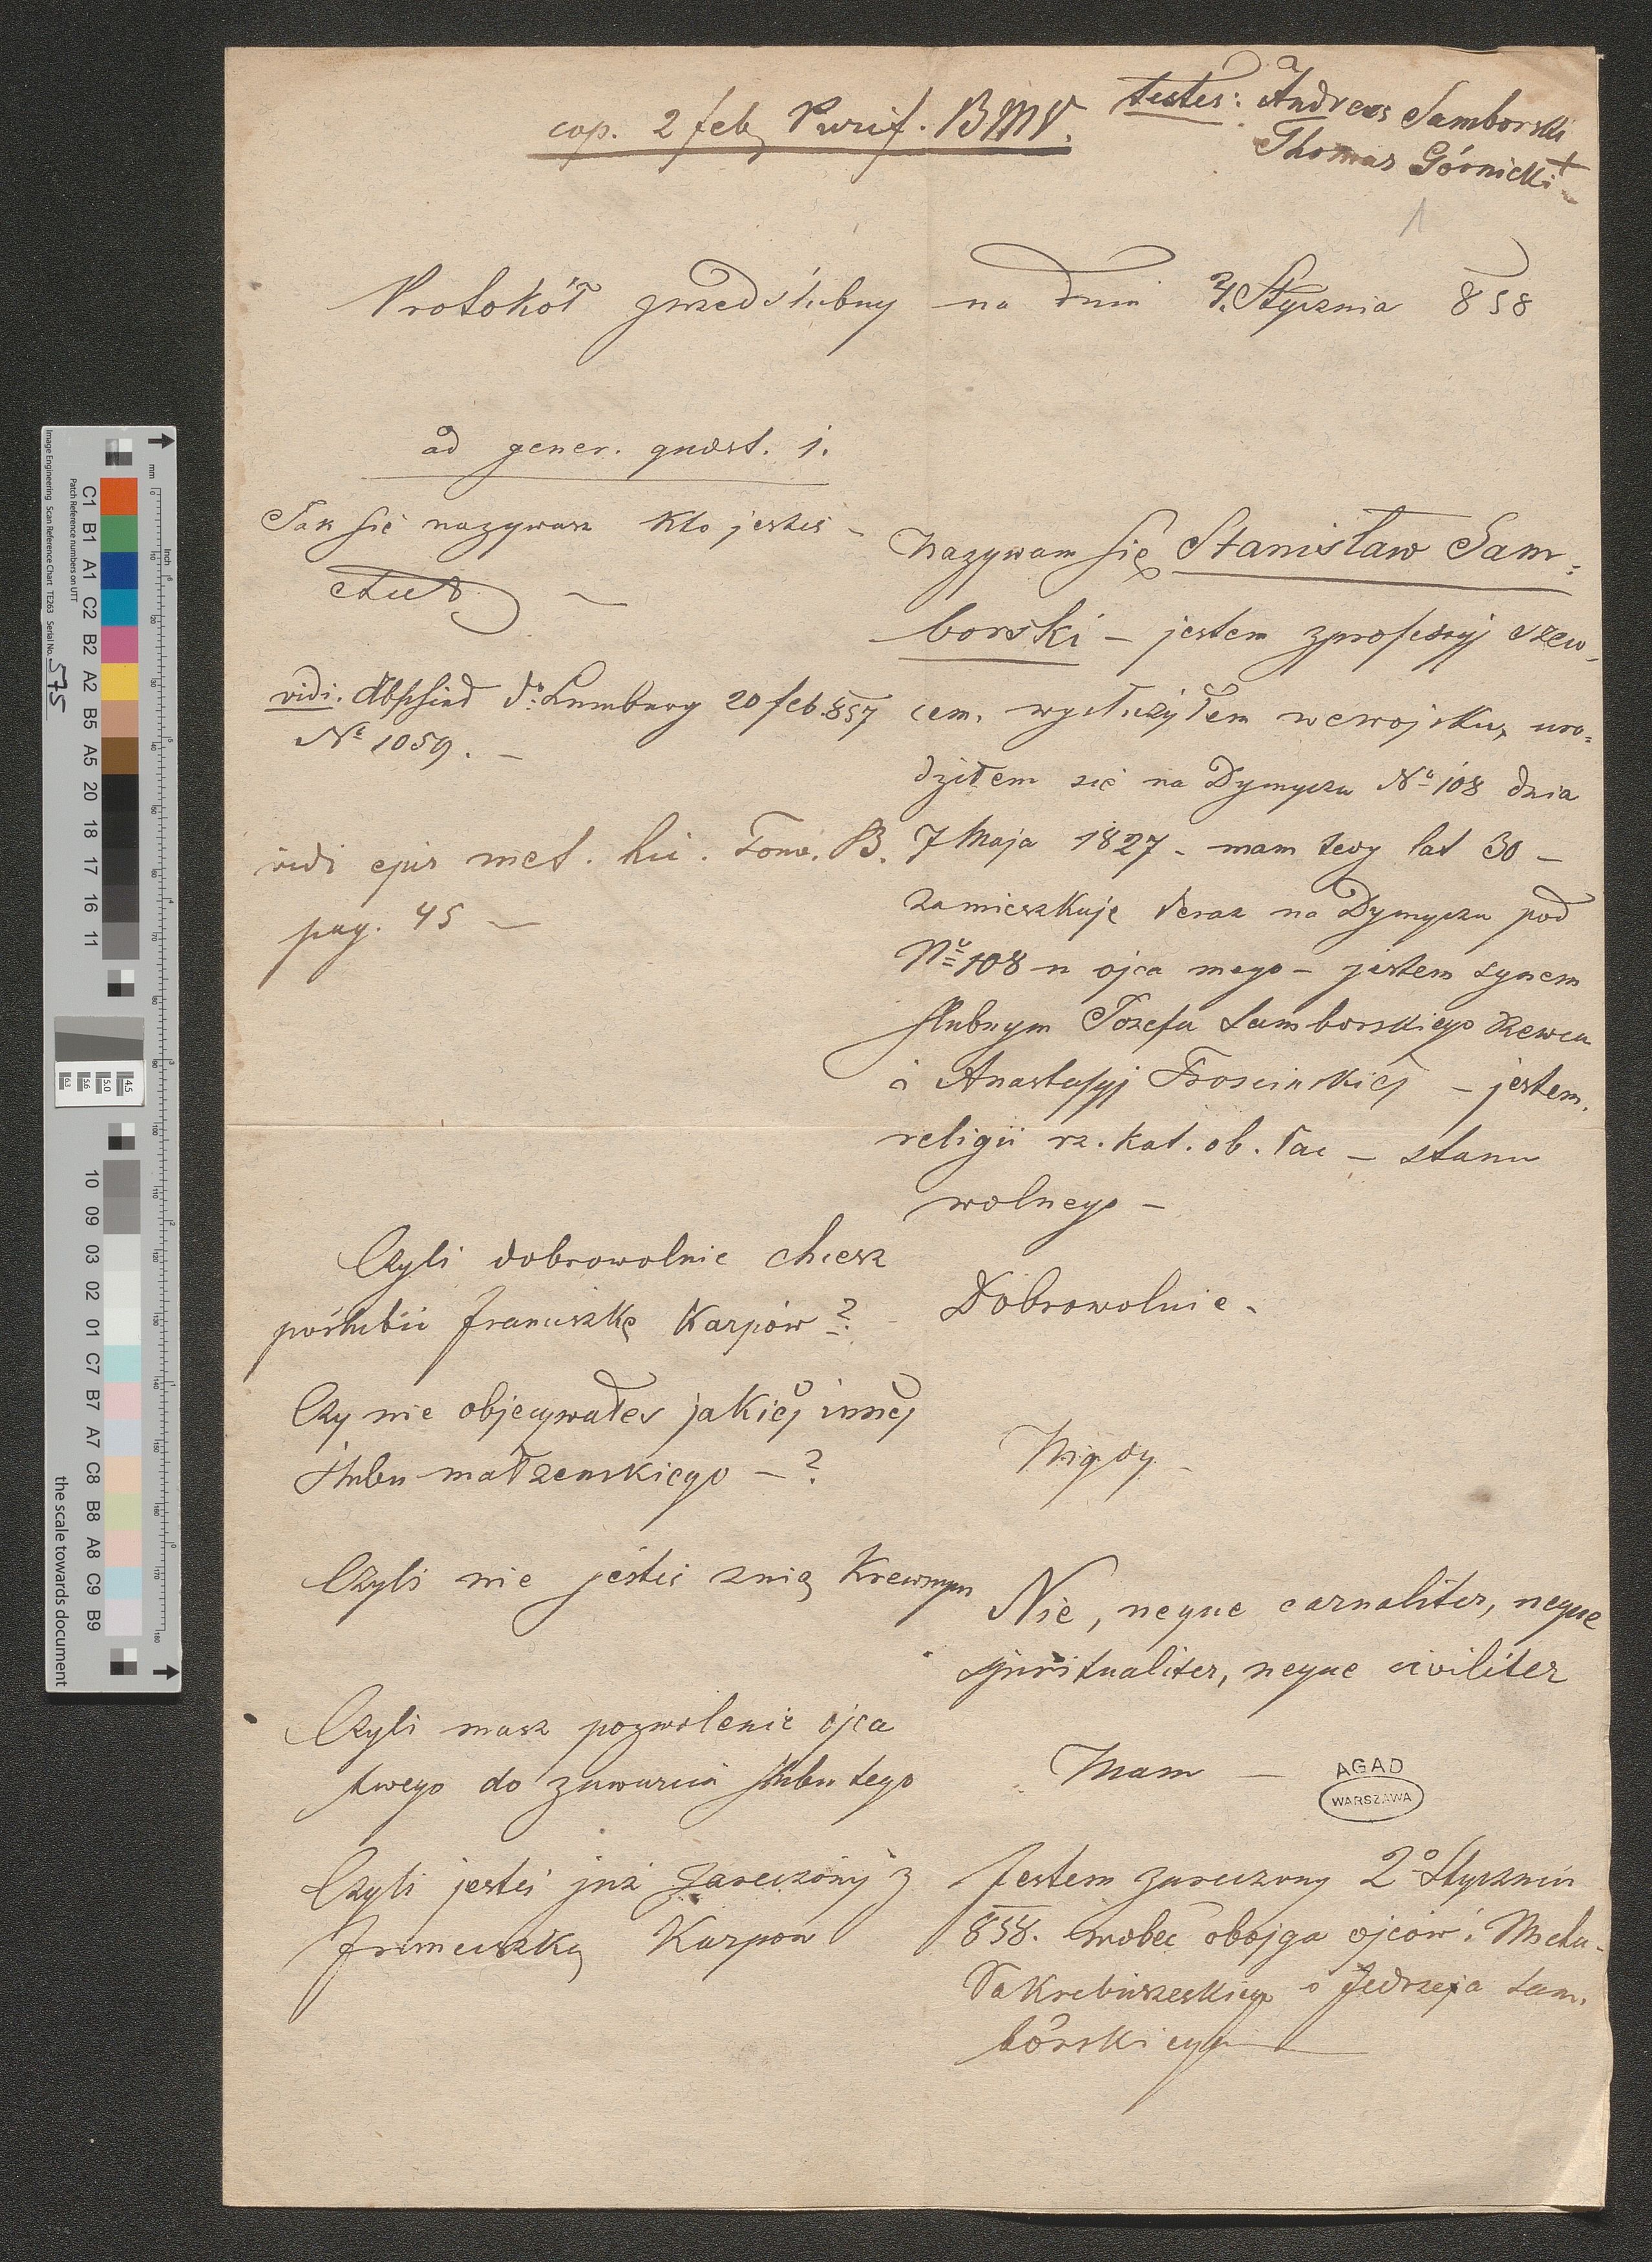 cop. 2 feb Purif. BMV.
testes: Andreas Samborski
Thomas Górnicki +
1
Protokół przedślubny na dniu Stycznia 858
ad gener. quæst. 1.
Jak się nazywasz kto jesteś –
vidi. Abschied Lemberg 20 feb. 857
No 1059. –
vidi met. hic. Tom. B.
pag. 45 –
Nazywam się Stanisław Sam=
borski – jestem z profesyj szew,
cem, wysłużyłem we wojsku, uro=
dziłem się na Dymyczu No 108 dnia
7 Maja 1827 – mam tedy lat 30 –
zamieszkuję teraz na Dymyczu pod
No 108 u ojca mego – jestem synem
ślubnym Józefa Samborskiego szewca
i Anastasyj – jestem
religii rz. kat. ob. łac – stanu
wolnego –
Czyli dobrowolnie chcesz
poślubić Franciszkę Karpów?
Dobrowolnie –
Czy nie objecywałeś jakiéj innéj
ślubu małżenskiego – ?
Nigdy –
Czyli nie jesteś z nią Krewnym
Nie, neque carnaliter, neque
spiritualiter, neque civiliter
Czyli masz pozwolenie ojca
twego do zawarcia ślubu tego
Mam –
AGAD
WARSZAWA
Czyli jesteś już zaręczony z
Franciszką Karpow
Jestem zaręczony 2o Stycznia
858. wobec obojga ojców i Micha-
ła i Jędrzeja Sam,
borskiego
Image Engineering Scan Reference Chart TE263 Serial No. 575
Patch Reference numbers on UTT
C1 B1 A1 C2 B2 A2 B5 A5 20 18 17 16 11
10 09 03 02 01 C7 B7 A7 C8 B8 A8 C9 B9
the scale towards document
mm
inch